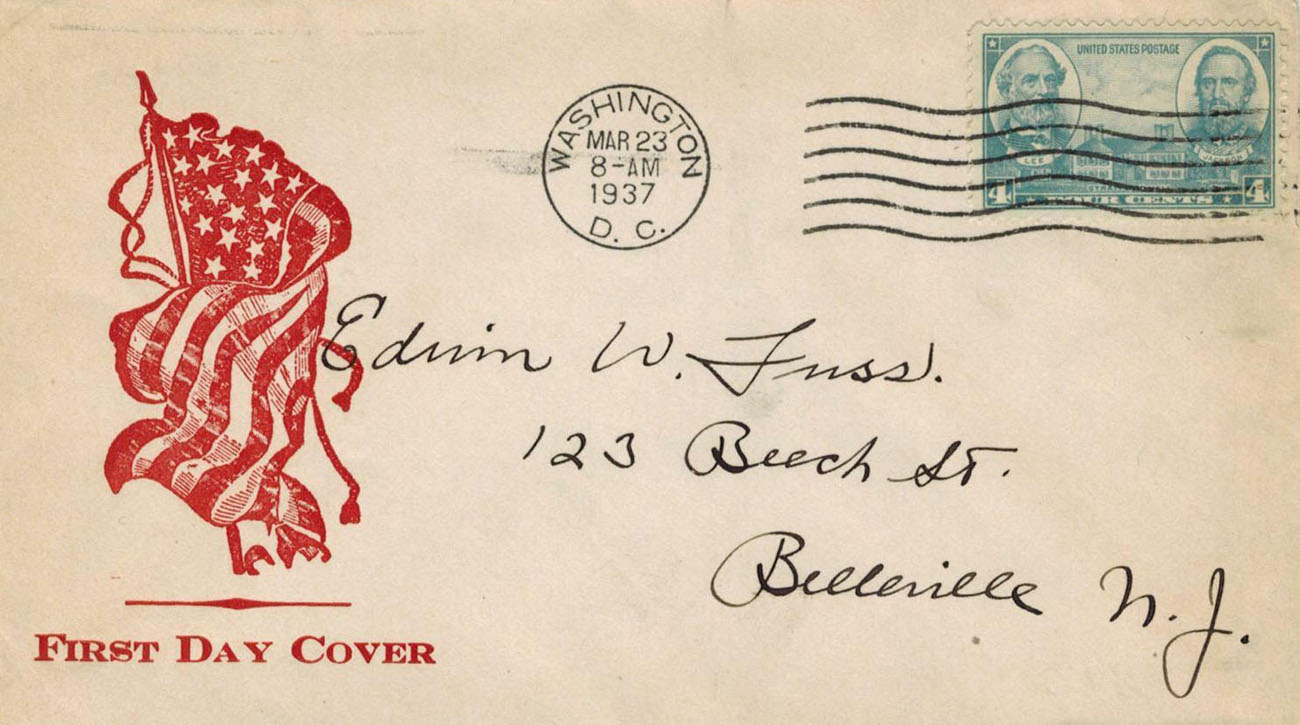 UNITED STATES POSTAGE
LEE
JACKSON
4 UR CENTS 4
WASHINGTON
MAR 23
8-AM
1937
D. C.
Edwin W. Fuss.
123 Beech St.
Belleville N. J.
FIRST DAY COVER